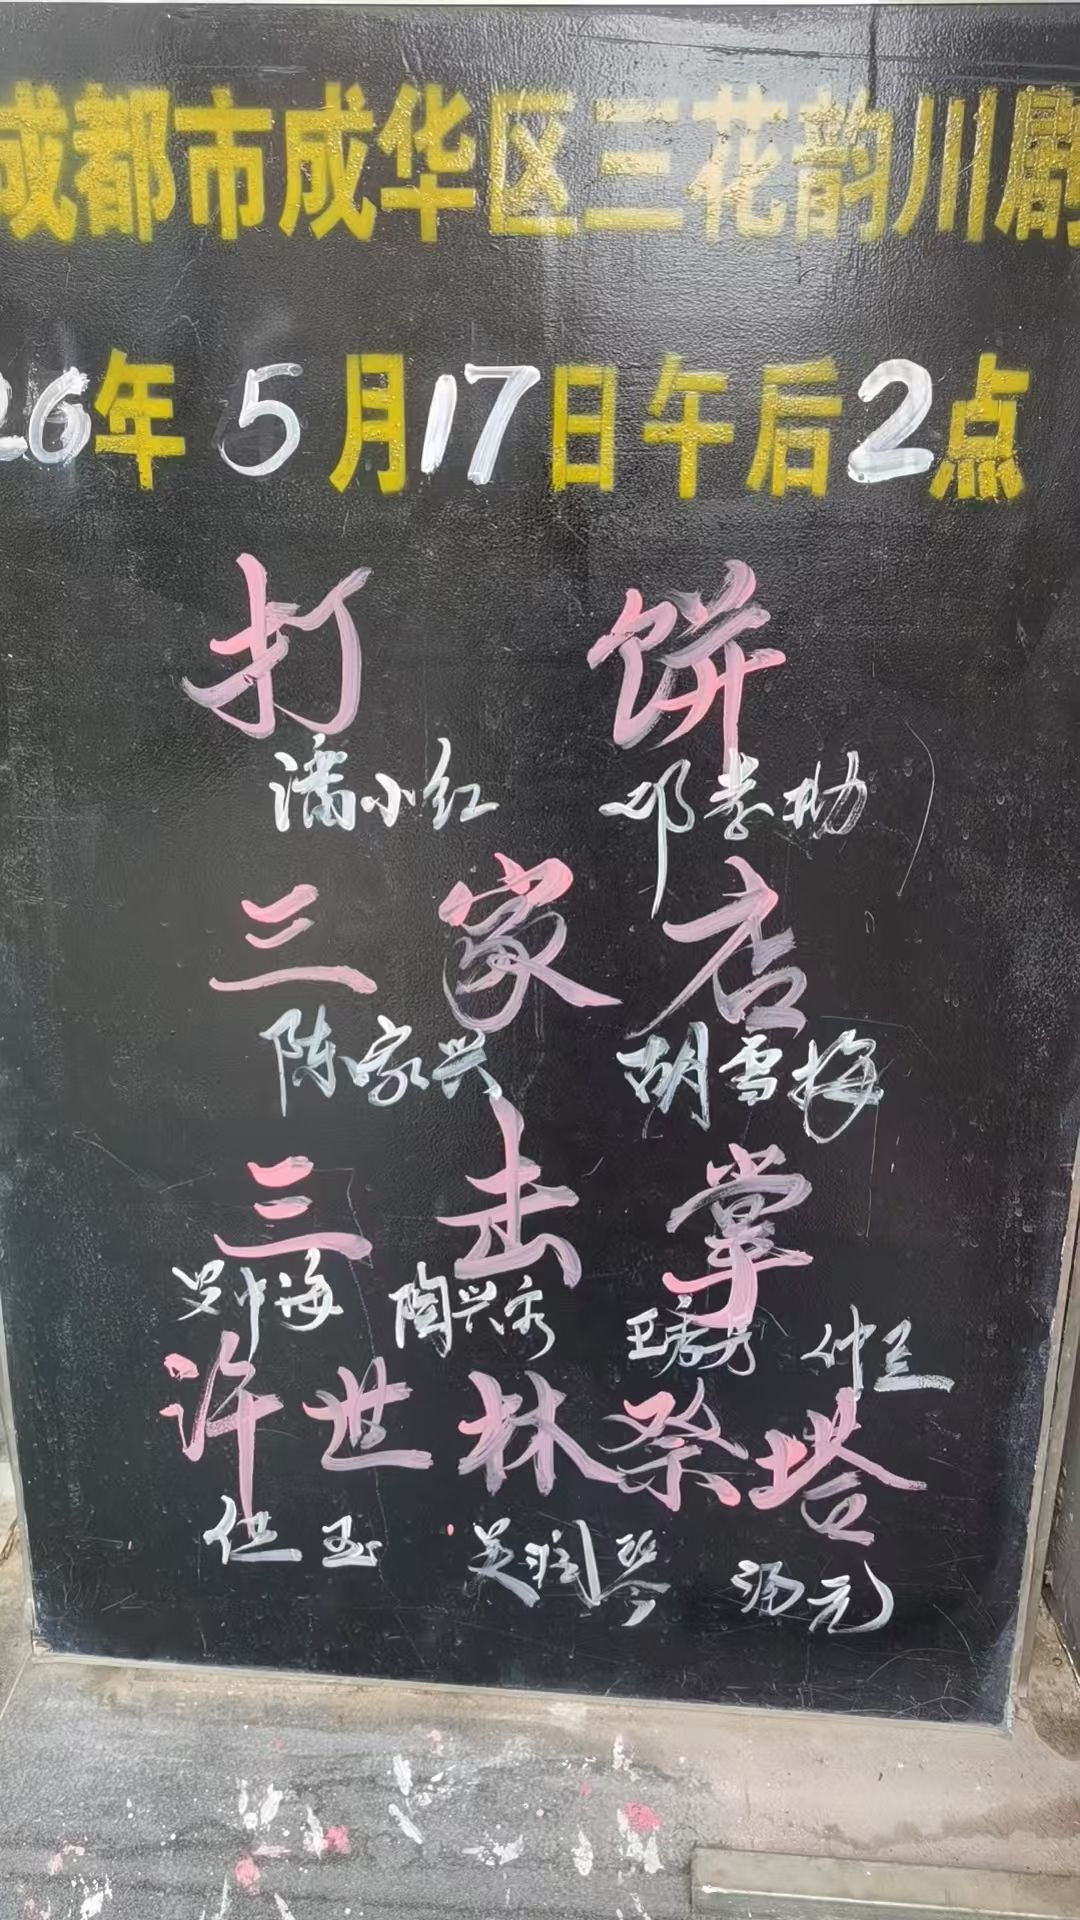 成都市成华区三花韵川剧
26年5月17日午后2点
打饼
潘小红 邓孝助
三家店
陈家兴 胡雪梅
三击掌
罗中海 陶兴容 王秀芳 仲兰
许世林祭塔
伍玉 吴润琴 汤元